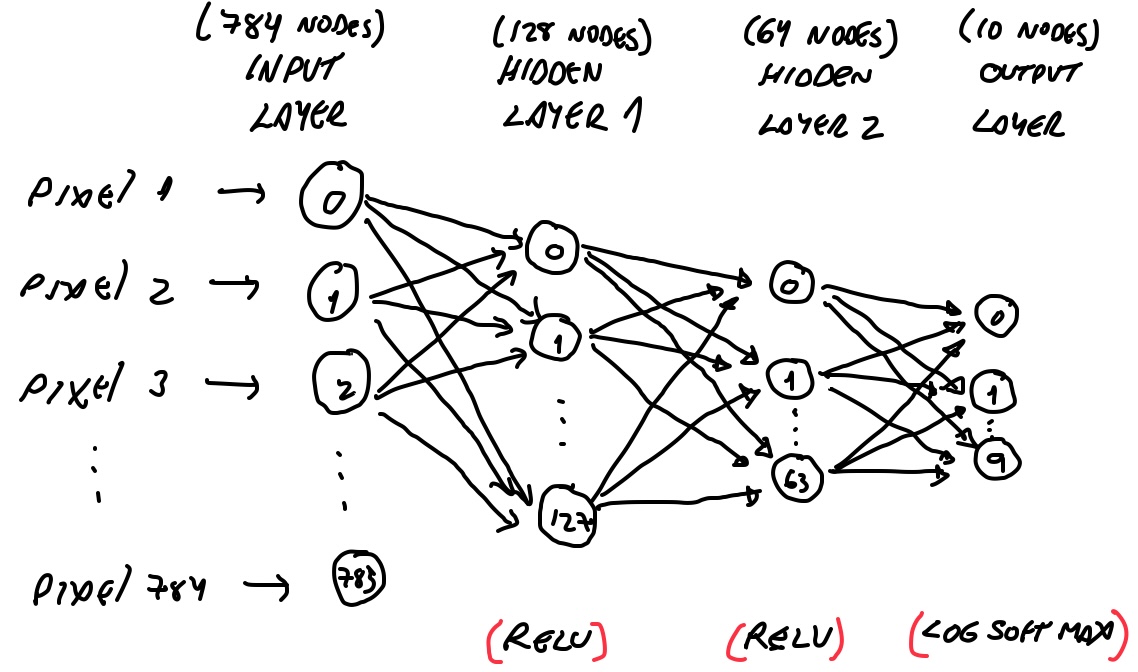 (784 NODES)
INPUT
LAYER
(128 NODES)
HIDDEN
LAYER 1
(64 NODES)
HIDDEN
LAYER 2
(10 NODES)
OUTPUT
LAYER
PIXEL 1
0
0
0
0
PIXEL 2
1
1
1
1
PIXEL 3
2
127
63
9
PIXEL 784
783
(RELU)
(RELU)
(LOG SOFT MAX)